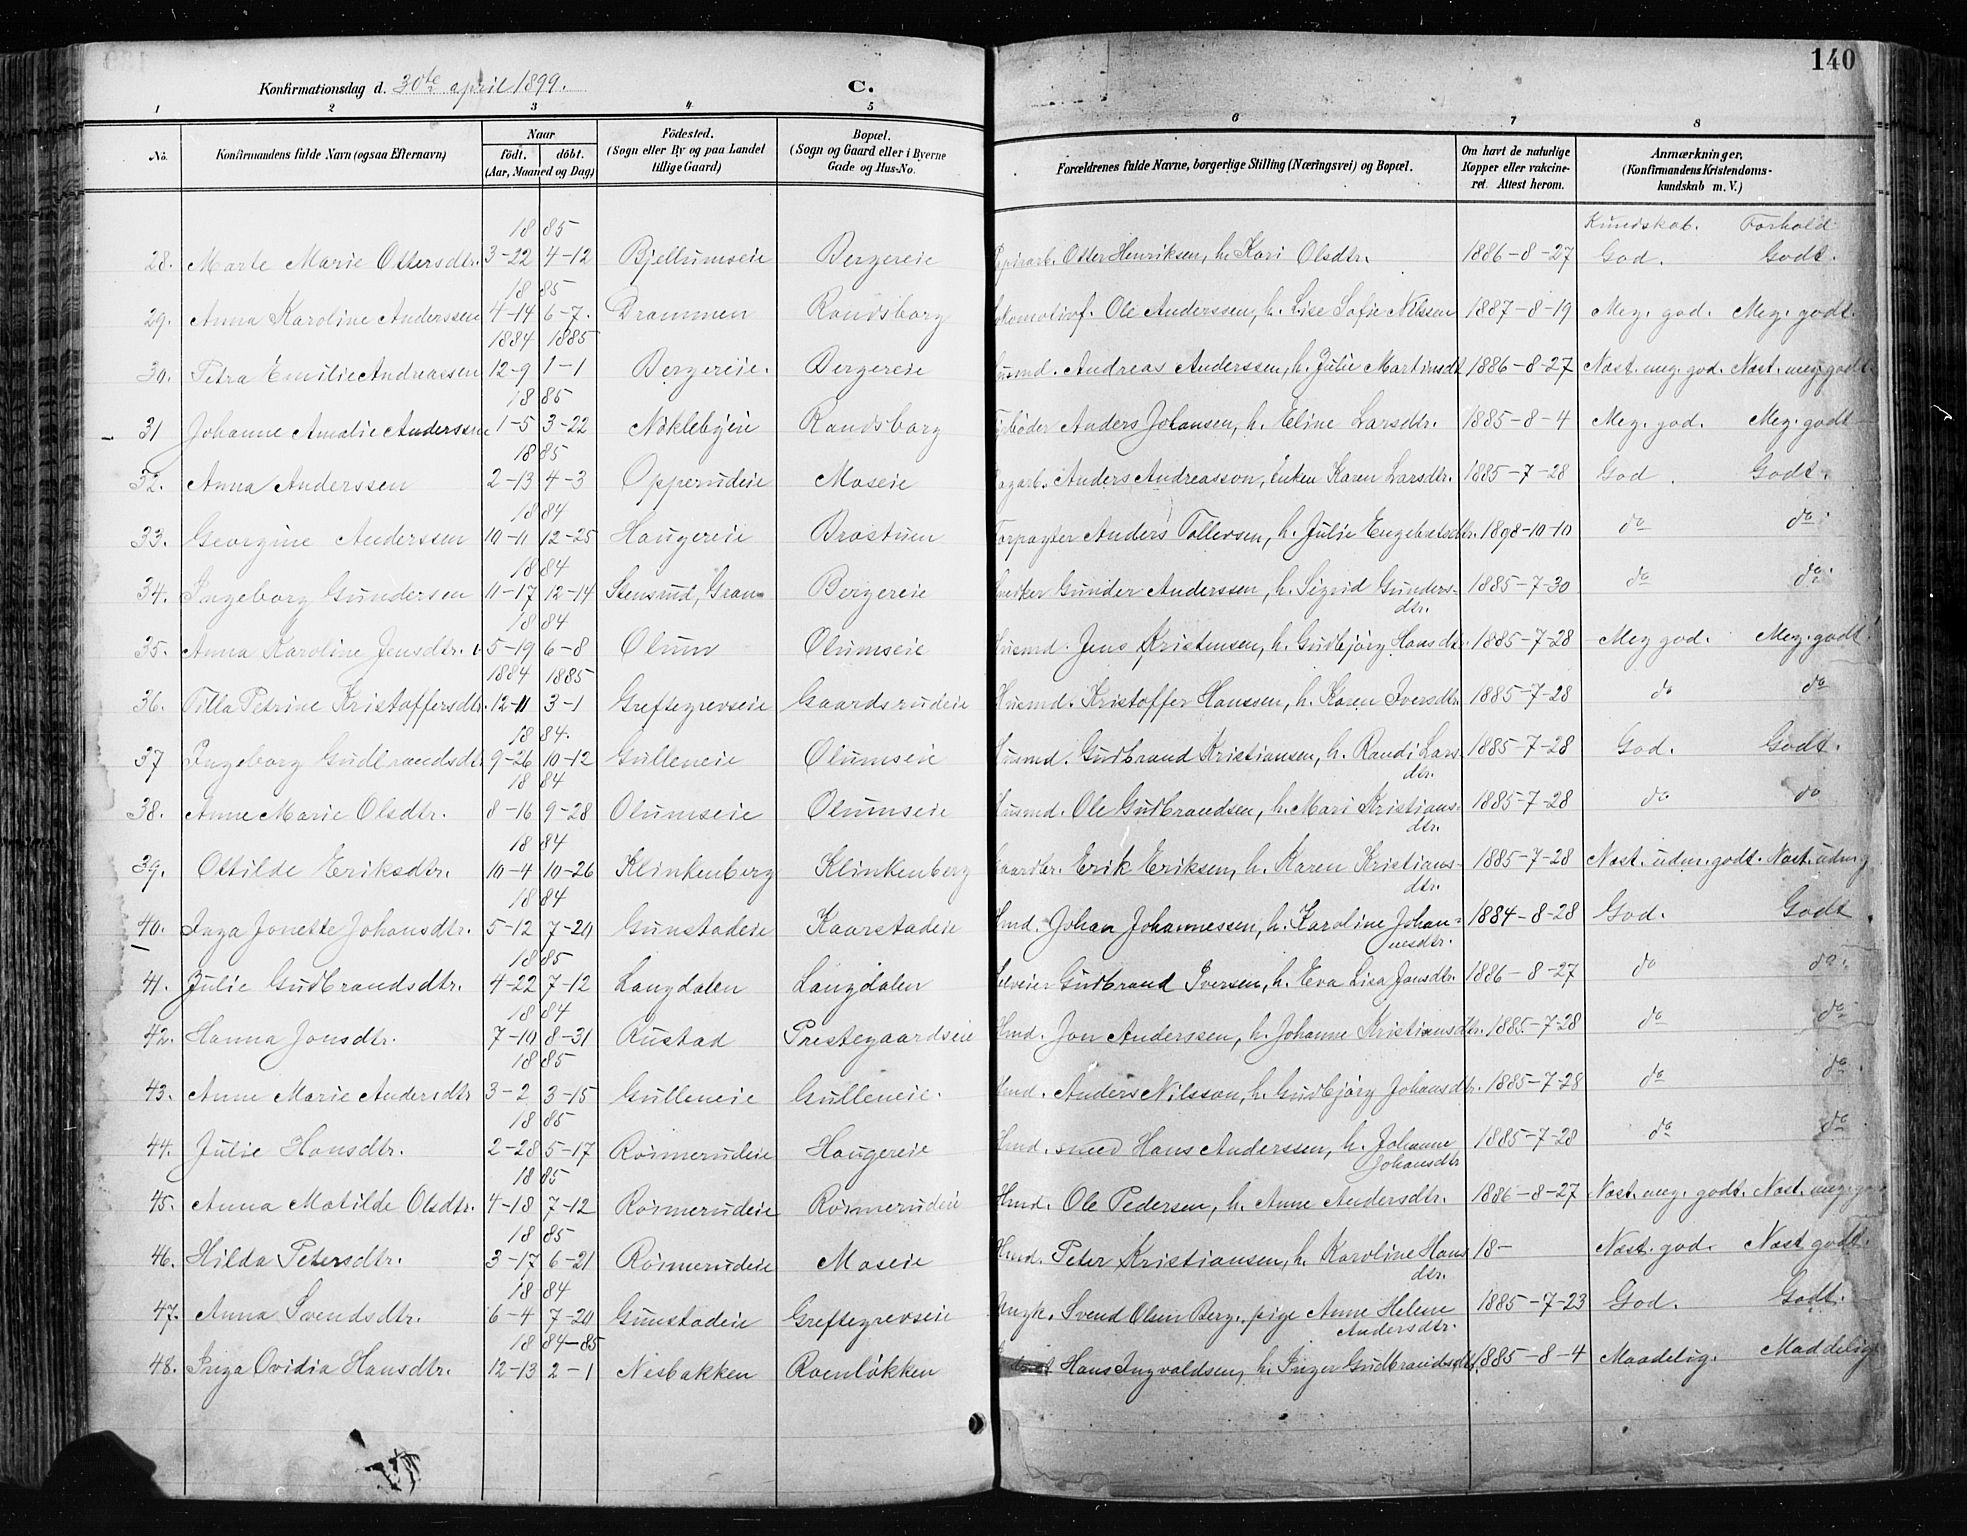 140
Konfirmationsdag d. 30te april 1899. C.
1 2 3 4 5 6 7 8
No. Konfirmandens fulde Navn (ogsaa Efternavn) Naar födt. döbt. (Aar, Maaned og Dag) Födested. (Sogn eller By og paa Landet tillige Gaard) Bopæl. (Sogn og Gaard eller i Byerne Gade og Hus-No. Forældrenes fulde Navne, borgerlige Stilling (Næringsvei) og Bopæl. Om havt de naturlige Kopper eller vakcineret. Attest herom. Anmærkninger, (Konfirmandens Kristendomskundskab m. V.)
Kundskab. Forhold
1885
28. Marte Marie Ottersdtr. 3-22 4-12 Bjellumseie Bergereie Otter Henriksen, h. Kari Olsdtr. 1886-8-27 God. Godt.
1885
29. Anna Karoline Anderssen 4-14 6-7. Drammen Randsborg Lokomotivf. Ole Anderssen, h. Lise Sofie Nilssen 1887-8-19 Meg. god. Meg. godt.
1884 1885
30. Petra Emilie Andreassen 12-9 1-1 Bergereie. Bergereie Husmd. Andreas Anderssen, h. Julie Martinsdt 1886-8-27 Næst. meg. god. Næst. meg. godt.
1885
31 Johanne Amalie Anderssen 1-5 3-22 Nøklebyeie Randsborg Anders Johansen, h. Eline Larsdtr. 1885-8-4 Meg. god. Meg. godt
1885
32. Anna Anderssen 2-13 4-3 Opperudeie Moseie Dagarb. Anders Andreasson, Enken Karen Larsdtr. 1885-7-28 God. Godt.
1884
33. Georgine Anderssen 10-11 12-25 Haugereie Brostuen Forpagter Anders Tollevsen, h. Julie Engebretsdtr. 1898-10-10 do do
1884
34. Ingeborg Gundersen 11-17 12-14 Stensrud, Gran Bergereie Snedker Gunder Anderssen, h. Sigrid Gundersdtr. 1885-7-30 do do
1884
35. Anna Karoline Jensdtr. 5-19 6-8 Olum Olumseie Husmd. Jens Kristensen, h. Gudbjørg Hansdtr. 1885-7-28 Meg god. Meg. godt
1884 1885
36. Tilla Petrine Kristoffersdtr. 12-11 3-1 Greftegrevseie Gaardsrudeie Husmd. Kristoffer Hanssen, h. Karen Iversdtr. 1885-7-28 do do
1884.
37 Ingeborg Gudbrandsdtr 9-26 10-12 Gulleneie Olumseie Husmd. Gudbrand Kristiansen, h. Randi Larsdtr. 1885-7-28 God. Godt.
1884
38. Anne Marie Olsdtr. 8-16 9-28 Olumseie Olumseie Husmd. Ole Gudbrandsen, h. Mari Kristiansdtr. 1885-7-28 do do
1884
39. Ostilde Eriksdtr. 10-4 10-26 Klinkenberg Klinkenberg Gaardbr. Erik Eriksen, h. Karen Kristiansdtr. 1885-7-28 Næst. udm. godt. Næst. udm. g
1884
40. Inga Jonette Johansdtr. 5-12 7-20 Gunstadeie Kaarstadeie Hmd. Johan Johannessen, h. Karoline Johannesdtr. 1884-8-28 God. Godt.
1885
41. Julie Gudbrandsdtr. 4-22 7-12 Langdalen Langdalen Selveier Gudbrand Iversen, h. Eva Lisa Jonsdtr. 1886-8-27 do do
1884
42. Hanna Jonsdtr. 7-10 8-31 Rustad Prestegaardseie Hmd. Jon Anderssen, h. Johanne Kristiansdtr. 1885-7-28 do do
1885
43. Anne Marie Andersdtr 3-2 3-15 Gulleneie Gulleneie. Hmd. Anders Nilsson, h. Gudbjørg Johansdtr. 1885-7-28 do do
1885
44. Julie Hansdtr. 2-28 5-17 Roimerudeie Haugereie Hmd. smed Hans Anderssen, h. Johanne Johansdtr 1885-7-28 do do
1885
45. Anna Matilde Olsdtr. 4-18 7-12 Roimerudeie Roimerudeie Hmd. Ole Pedersen, h. Anne Andersdtr. 1886-8-27 Næst. meg. godt. Næst. meg. go
1885
46. Hilda Petersdtr. 3-17 6-21 Roimerudeie Moseie Hmd. Peter Kristiansen, h. Karoline Hansdtr. 18- Næst. god. Næst godt.
1884
47. Anna Svendsdtr. 6-4 7-20 Gunstadeie Greftegrevseie Ungk. Svend Olsen Berg, pige Anne Helene Andersdtr. 1885-7-23 God. Godt.
1884-85
48. Inga Ovidia Hansdtr. 12-13 2-1 Nesbakken Roenløkken Hans Ingvaldsen, h. Inger Gudbrandsdtr. 1885-8-4 Maadelig. Maadelig